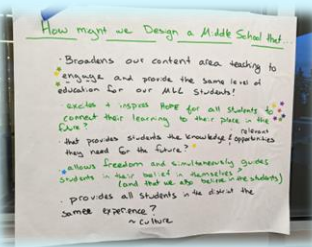 How might we Design a Middle School that...
• Broadens our content area teaching to
engage and provide the same level of
education for our MLL Students?
• excites + inspires HOPE for all students to
connect their learning to their place in the
future?
relevant
• that provides students the knowledge & opportunities
they need for the future?
• allows freedom and simultaneously guides
students in their belief in themselves?
(and that we also believe in the students)
• provides all students in the district the
same experience?
~ culture